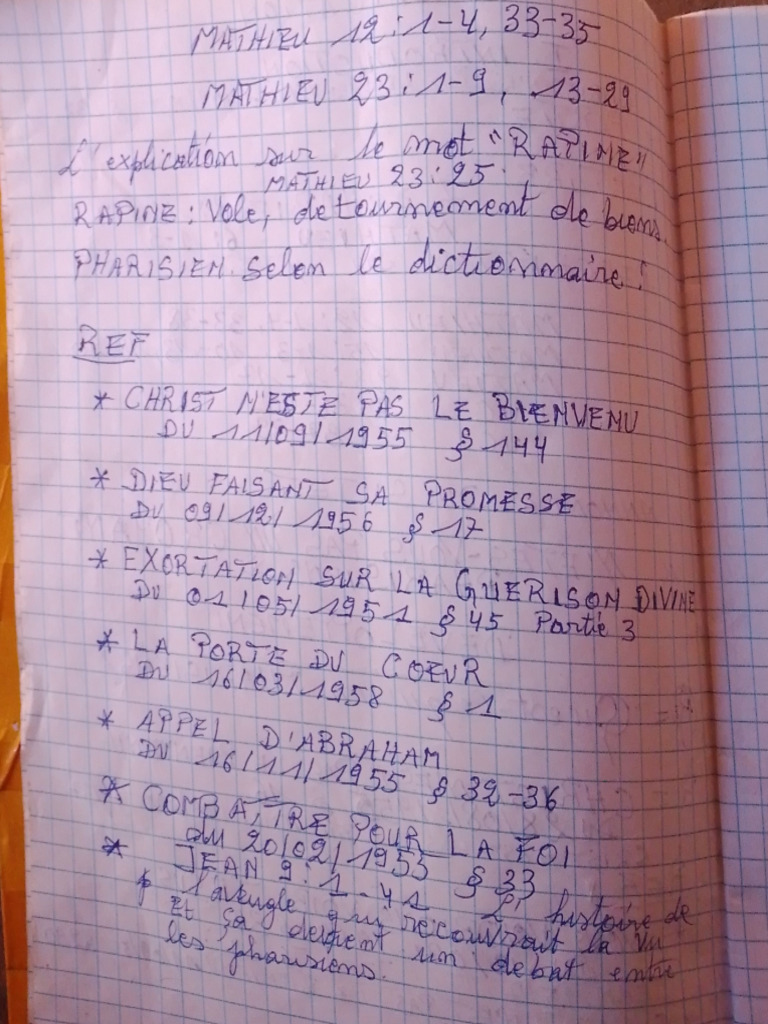 MATHIEU 12 : 1-4, 33-35
MATHIEU 23 : 1-9, 13-29
L'explication sur le mot "RAPINE"
MATHIEU 23 : 25.
RAPINE : Vole, detournement de biens.
PHARISIEN selon le dictionnaire :
REF
* CHRIST N'ESTE PAS LE BIENVENU
DU 11/09/1955 § 144
* DIEU FAISANT SA PROMESSE
DU 09/12/1956 § 17
* EXORTATION SUR LA GUERISON DIVINE
DU 01/05/1951 § 45 Partie 3
* LA PORTE DU COEUR
DU 16/03/1958 § 1
* APPEL D'ABRAHAM
DU 16/11/1955 § 32-36
* COMBATTRE POUR LA FOI
DU 20/02/1953 § 33
* JEAN 9 : 1-41 L'histoire de
l'aveugle qui recouvrait la vu
Et ça devient un debat entre
les pharisiens.